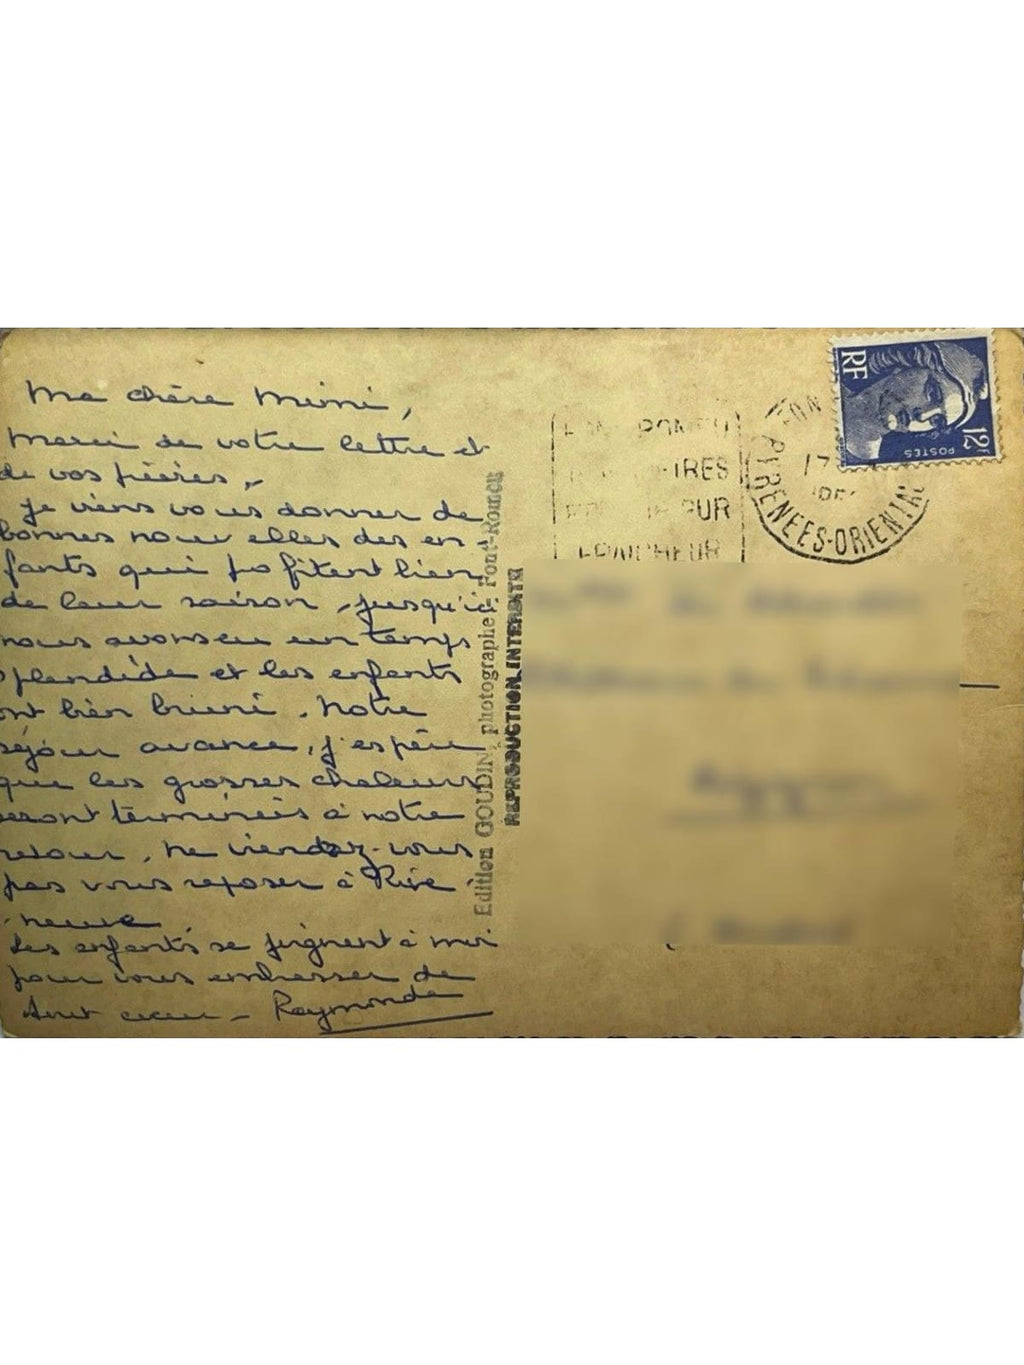 Ma chère Mimi,
Merci de votre lettre et
de vos prières,
Je viens vous donner de
bonnes nouvelles des en-
fants qui profitent bien
de leur saison, jusqu'ici
nous avons eu un temps
splendide et les enfants
ont bien bruni. Notre
séjour avance, j'espère
que les grosses chaleurs
seront terminées à notre
retour. Ne viendez-vous
pas vous reposer à Rive
neuve.
Les enfants se joignent à moi
pour vous embrasser de
tout coeur - Raymonde
Edition GOUDIN, photographe - Font-Romeu
REPRODUCTION INTERDITE
ROMEU
TRES
SUR
FRAICHEUR
17
PYRENEES-ORIENTALES
RF
12F
POSTES